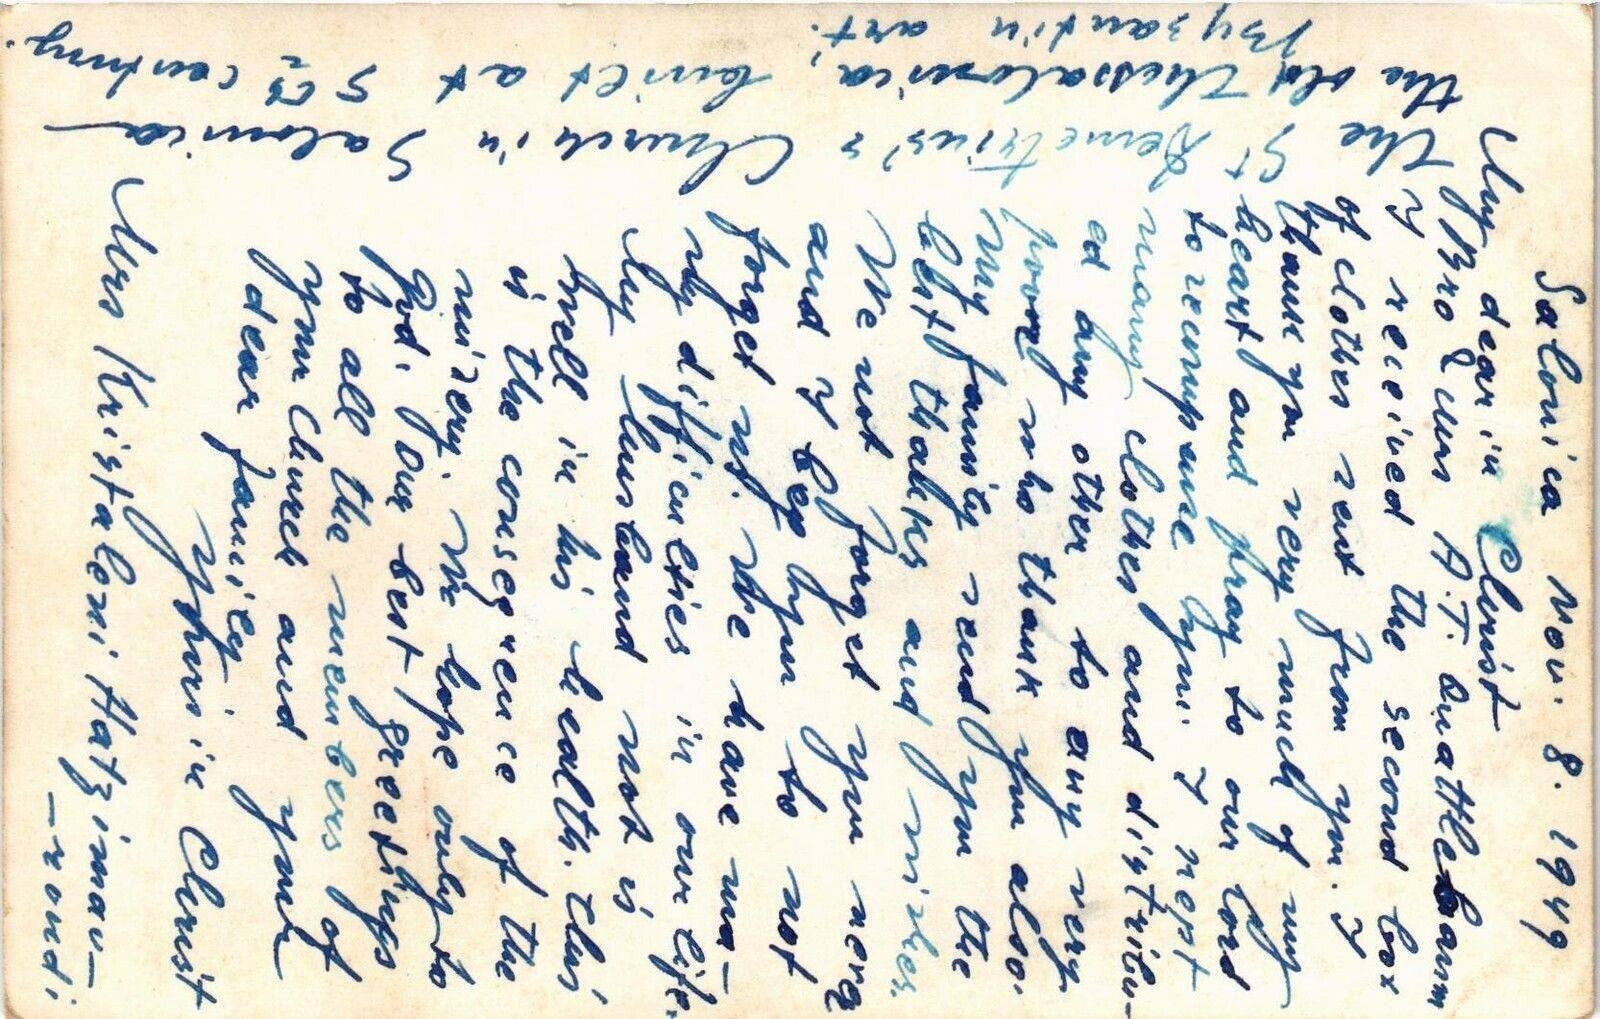 Salonica Nov. 8. 1949
My dear in Christ
Bro & Mrs A.T. Quattlebaum
I received the second box
of clothes sent from you. I
thank you very much of my
heart and pray to our Lord
to recompense you. I kept
many clothes and distribu-
ed any other to any very
poor who thank you also.
My family send you the
best thanks and wishes.
We not forget you never
and I beg you to not
forget us. We have ma-
ny difficulties in our life.
My husband not is
well in his health. This
is the consequence of the
misery. We hope only to
God. Our best greetings
to all the members of
your Church and your
dear family.
Yours in Christ
Mrs Kristaleni Hatzimav-
-roudi
The St Demetrius's Church in Salonica
the old Thessalonica, built at 5th century.
Byzantin art.